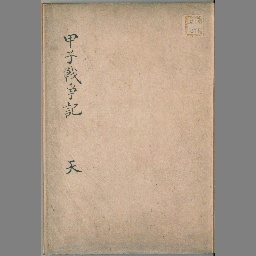 甲子戦争記
天